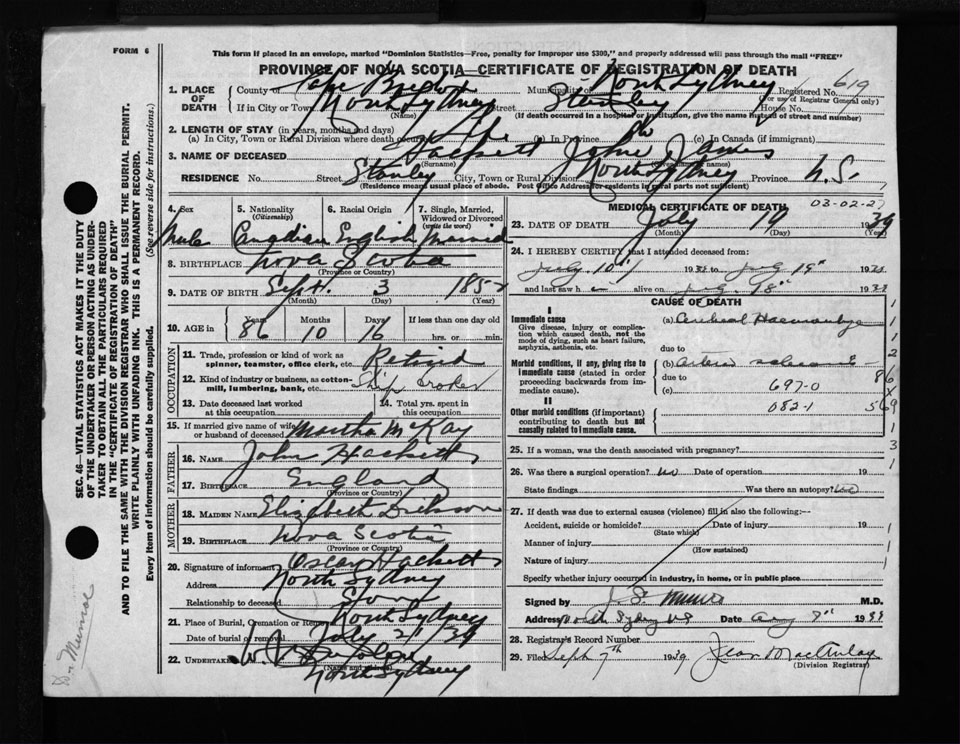 FORM 6
This form if placed in an envelope, marked "Dominion Statistics—Free, penalty for improper use $300," and properly addressed will pass through the mail "FREE"
PROVINCE OF NOVA SCOTIA—CERTIFICATE OF REGISTRATION OF DEATH
SEC. 46—VITAL STATISTICS ACT MAKES IT THE DUTY
OF THE UNDERTAKER OR PERSON ACTING AS UNDER-
TAKER TO OBTAIN ALL THE PARTICULARS REQUIRED
IN THE "CERTIFICATE OF REGISTRATION OF DEATH"
AND TO FILE THE SAME WITH THE DIVISION REGISTRAR WHO SHALL ISSUE THE BURIAL PERMIT.
WRITE PLAINLY WITH UNFADING INK. THIS IS A PERMANENT RECORD.
Every item of information should be carefully supplied. (See reverse side for instructions.)
Dr Munroe
1. PLACE OF DEATH County of Cape Breton Municipality of North Sydney Registered No. 619
(For use of Registrar General only)
If in City or Town North Sydney Street Stanley House No.
(Name) (If death occurred in a hospital or institution, give the name instead of street and number)
2. LENGTH OF STAY (in years, months and days)
(a) In City, Town or Rural Division where death occurred Life (b) In Province (c) In Canada (if immigrant)
3. NAME OF DECEASED Hackett John James
(Surname)
RESIDENCE No. Street Stanley City, Town or Rural Division North Sydney Province N.S.
(Residence means usual place of abode. Post Office Address for residents in rural parts not sufficient)
4. Sex Male
5. Nationality (Citizenship) Canadian
6. Racial Origin English
7. Single, Married, Widowed or Divorced (write the word) Married
8. BIRTHPLACE Nova Scotia
(Province or Country)
9. DATE OF BIRTH Sept. 3 1852
(Month) (Day) (Year)
10. AGE in Years 86 Months 10 Days 16 If less than one day old
hrs. or min.
OCCUPATION
11. Trade, profession or kind of work as spinner, teamster, office clerk, etc. Retired
12. Kind of industry or business, as cotton-mill, lumbering, bank, etc. Ship Broker
13. Date deceased last worked at this occupation
14. Total yrs. spent in this occupation
15. If married give name of wife or husband of deceased Martha McKay
FATHER
16. NAME John Hackett
17. Birthplace England
(Province or Country)
MOTHER
18. MAIDEN NAME Elizabeth Dickson
19. BIRTHPLACE Nova Scotia
(Province or Country)
20. Signature of informant Oscar Hackett
Address North Sydney
Relationship to deceased Son
21. Place of Burial, Cremation or Removal North Sydney
Date of burial or removal July 21/39
22. UNDERTAKER
(Name and address)
North Sydney
MEDICAL CERTIFICATE OF DEATH 03-02-27
23. DATE OF DEATH July 19 1939
(Month) (Day) (Year)
24. I HEREBY CERTIFY that I attended deceased from:
July 10th 1939 to July 19th 1939
and last saw h im alive on July 18th 1939
CAUSE OF DEATH
I
Immediate cause
Give disease, injury or complication which caused death, not the mode of dying, such as heart failure, asphyxia, asthenia, etc.
(a) Cerebral Haemorrhage
due to
Morbid conditions, if any, giving rise to immediate cause (stated in order proceeding backwards from immediate cause).
(b) Arterio sclerosis
due to
(c) 697-0
II
Other morbid conditions (if important) contributing to death but not causally related to immediate cause.
082-1
25. If a woman, was the death associated with pregnancy?
26. Was there a surgical operation? no Date of operation 19
State findings Was there an autopsy? no
27. If death was due to external causes (violence) fill in also the following:—
Accident, suicide or homicide? Date of injury 19
(State which)
Manner of injury
(How sustained)
Nature of injury
Specify whether injury occurred in industry, in home, or in public place
Signed by J S Munro M.D.
Address North Sydney NS Date Aug 8th 1939
28. Registrar's Record Number
29. Filed Sept 7th 1939 Jean MacAulay
(Division Registrar)